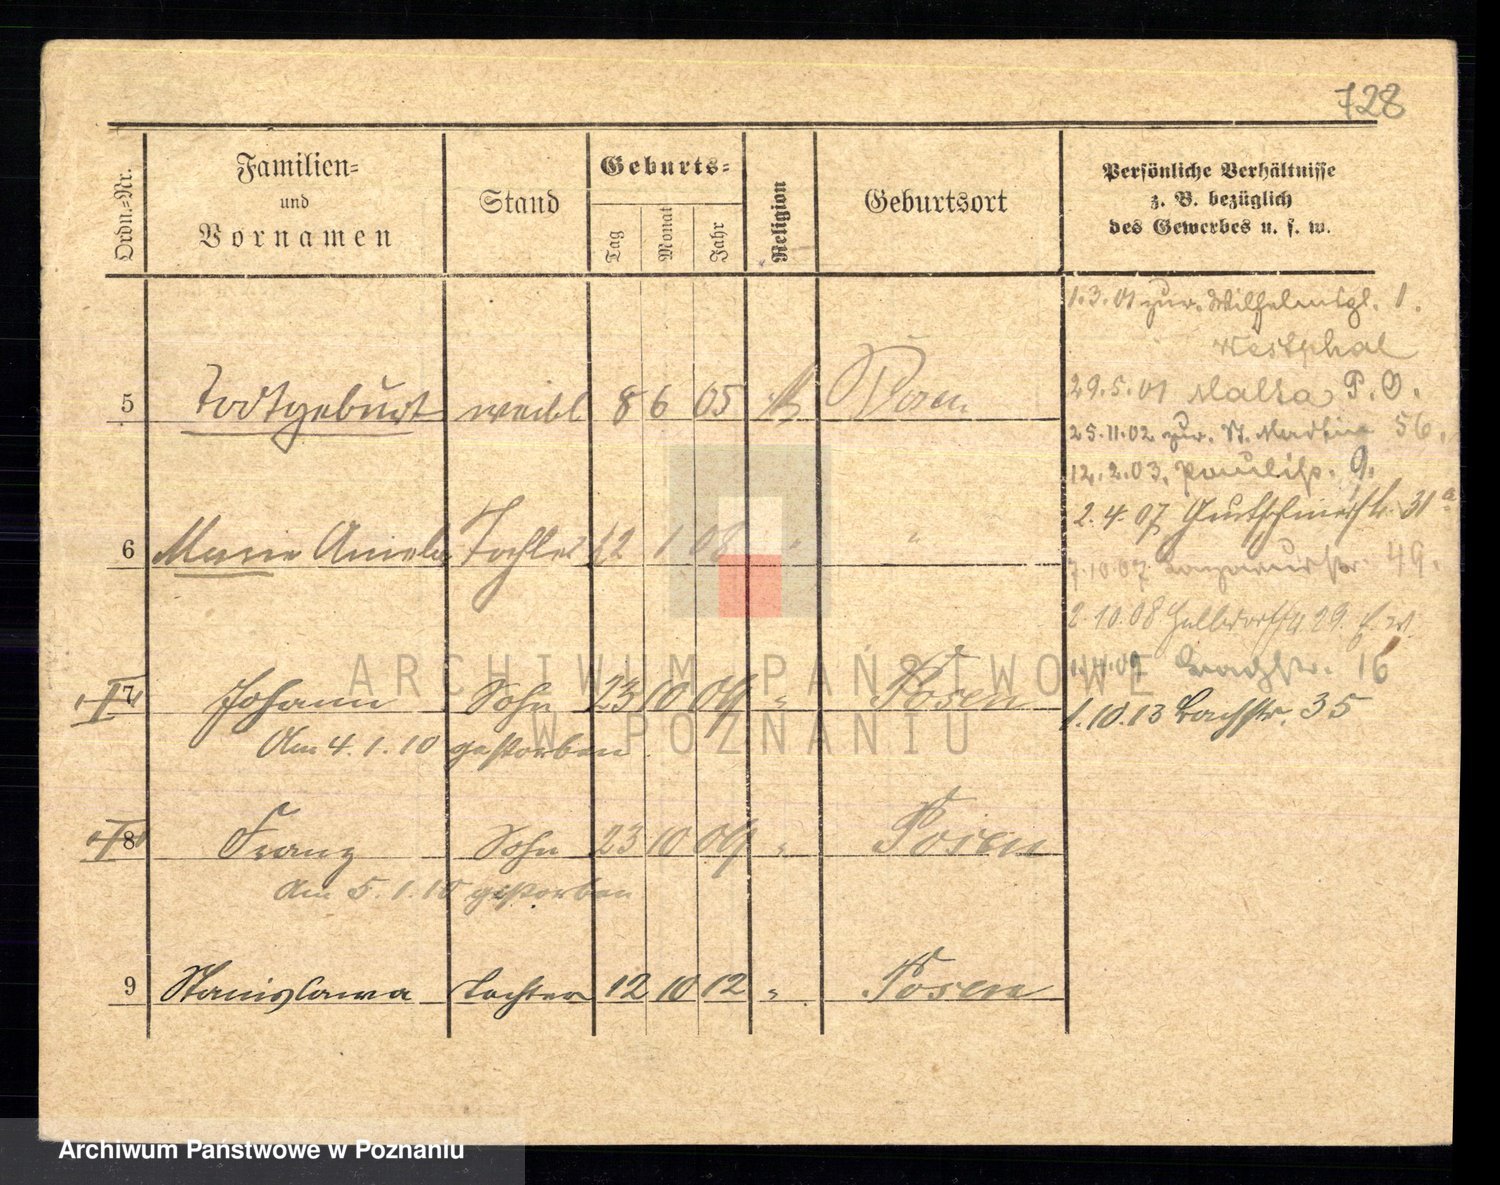 728
Ordn.-Nr.
Familien-
und
Vornamen
Stand
Geburts-
Tag
Monat
Jahr
Religion
Geburtsort
Persönliche Verhältnisse
z. B. bezüglich
des Gewerbes u. s. w.
1.3.01 zur. Wilhelmspl. 1.
Westphal
29.5.01 Malta P. O.
25.11.02 zur. St. Martin 56.
12.2.03. Paulisp. 9.
2.4.07 31a
7.10.07 49.
2.10.08 29.
16
1.10.13 Bachstr. 35
5 Todtgeburt weibl 8 6 05 Posen
6 Marie Aniela Tochter 12 1 08 " "
7 Johann Sohn 23 10 09 " Posen
Am 4.1.10 gestorben.
8 Franz Sohn 23 10 09 " Posen
Am 5.1.10 gestorben
9 Stanislawa Tochter 12 10 12 " Posen
ARCHIWUM PAŃSTWOWE
W POZNANIU
Archiwum Państwowe w Poznaniu